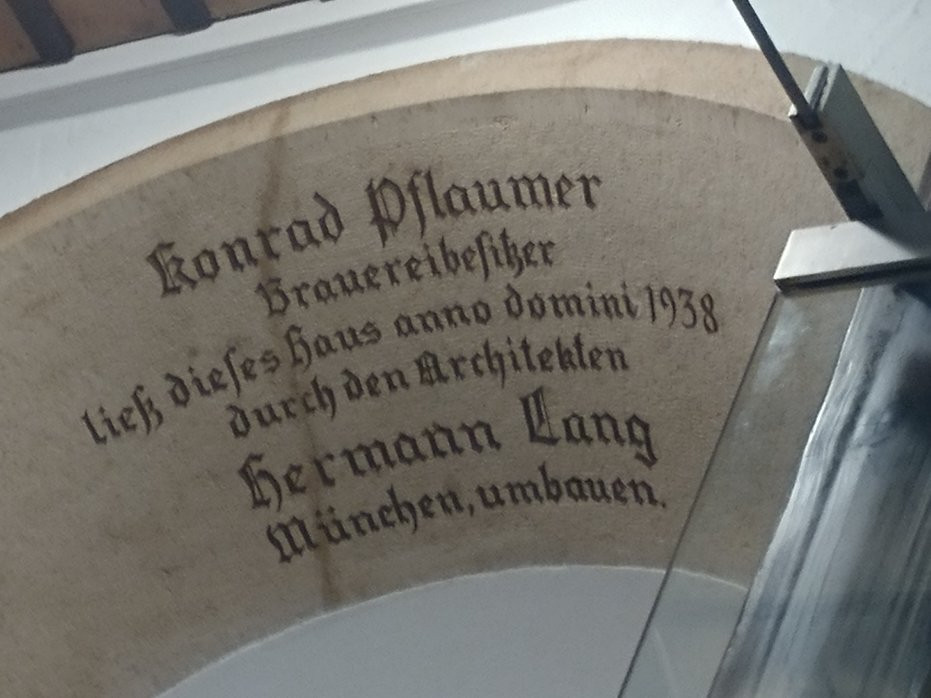 Konrad Pflaumer
Brauereibeſitzer
ließ dieſes Haus anno domini 1938
durch den Architekten
Hermann Lang
München, umbauen.